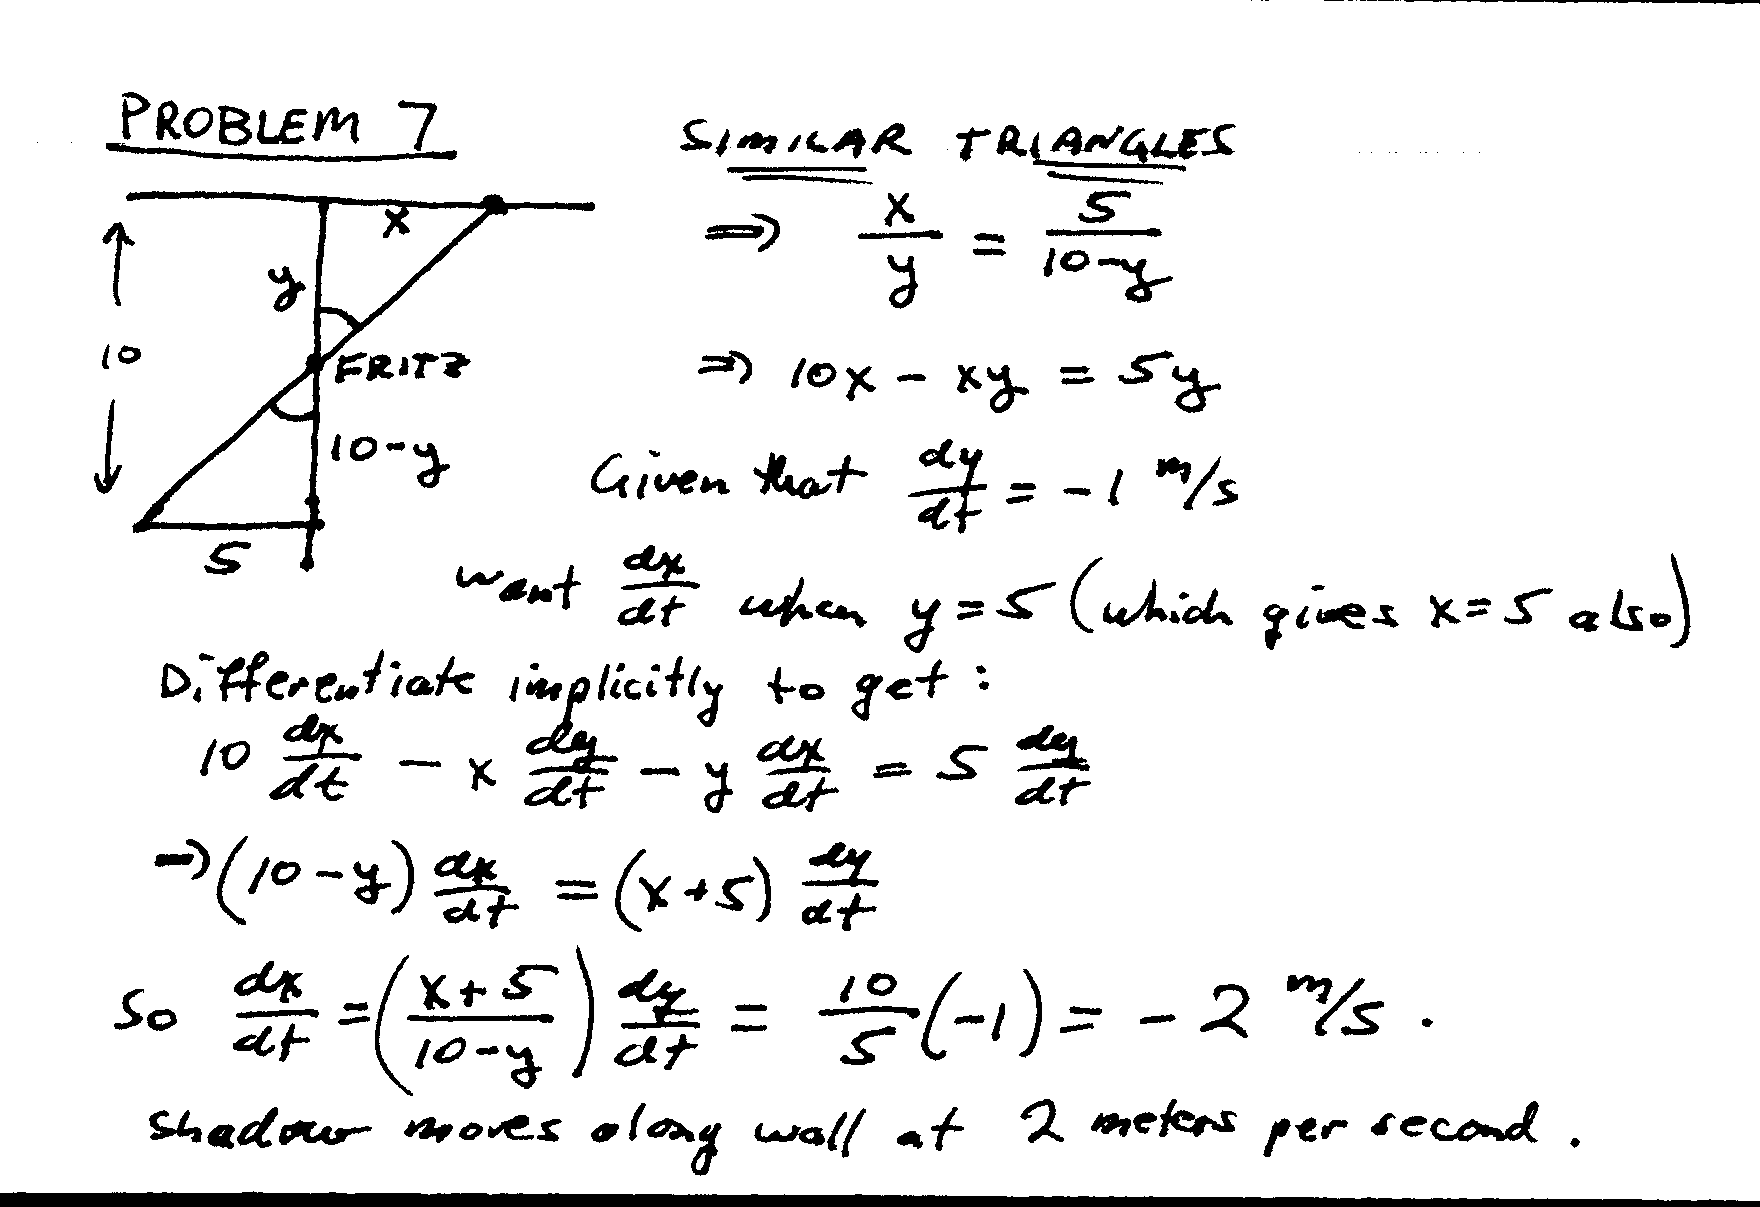 PROBLEM 7
SIMILAR TRIANGLES
x
y
10
FRITZ
10-y
5
⇒ x/y = 5/(10-y)
⇒ 10x - xy = 5y
Given that dy/dt = -1 m/s
want dx/dt when y = 5 (which gives x = 5 also)
Differentiate implicitly to get :
10 dx/dt - x dy/dt - y dx/dt = 5 dy/dt
⇒ (10-y) dx/dt = (x+5) dy/dt
So dx/dt = ((x+5)/(10-y)) dy/dt = 10/5 (-1) = -2 m/s .
Shadow moves along wall at 2 meters per second .